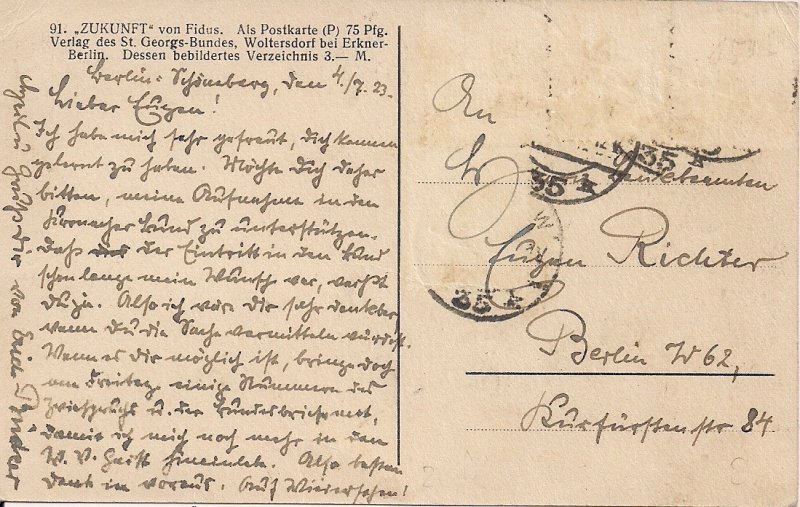 91. „ZUKUNFT“ von Fidus. Als Postkarte (P) 75 Pfg.
Verlag des St. Georgs-Bundes, Woltersdorf bei Erkner-
Berlin. Dessen bebildertes Verzeichnis 3.— M.
Berlin-Schöneberg, den 4./7. 23.
Lieber Eugen!
Ich habe mich sehr gefreut, dich kennen
gelernt zu haben. Möchte dich daher
bitten, meine Aufnahme in den
Kronacher Bund zu unterstützen.
Daß der Eintritt in den Bund
schon lange mein Wunsch war, weißt
du ja. Also ich wäre dir sehr dankbar,
wenn du die Sache vermitteln würdest.
Wenn es dir möglich ist, bringe doch
am Freitag einige Nummern des
Zwiespruchs u. der Bundesbriefe mit,
damit ich mich noch mehr in den
W. V. Geist hineinlebe. Also besten
Dank im voraus. Auf Wiedersehen!
von
An
Eugen Richter
Berlin W 62,
Kurfürstenstr 84
35
35
35